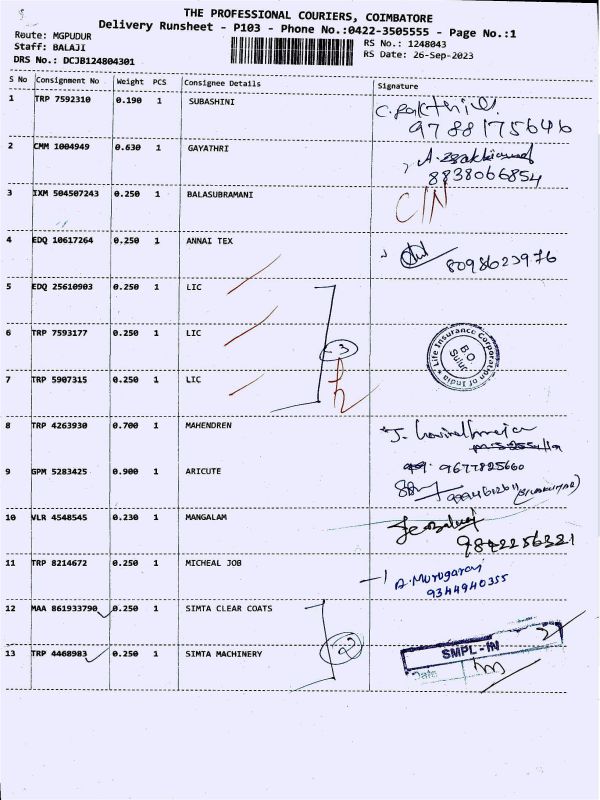 THE PROFESSIONAL COURIERS, COIMBATORE
Delivery Runsheet - P103 - Phone No.:0422-3505555 - Page No.:1
Route: MGPUDUR RS No.: 1248043
Staff: BALAJI RS Date: 26-Sep-2023
DRS No.: DCJB124804301
S No Consignment No Weight PCS Consignee Details Signature
1 TRP 7592310 0.190 1 SUBASHINI
9788175646
2 CMM 1004949 0.630 1 GAYATHRI
8838066854
3 IXM 504507243 0.250 1 BALASUBRAMANI C/N
4 EDQ 10617264 0.250 1 ANNAI TEX
8098623976
5 EDQ 25610903 0.250 1 LIC
6 TRP 7593177 0.250 1 LIC
3
Life Insurance Corporation of India
B.O.
Sulur
7 TRP 5907315 0.250 1 LIC
8 TRP 4263930 0.700 1 MAHENDREN
9 GPM 5283425 0.900 1 ARICUTE
9677825660
(SIVAKUMAR)
10 VLR 4548545 0.230 1 MANGALAM
9842256321
11 TRP 8214672 0.250 1 MICHEAL JOB
A. Murugaraj
9344940355
12 MAA 861933790 0.250 1 SIMTA CLEAR COATS
2
13 TRP 4468983 0.250 1 SIMTA MACHINERY
SMPL-IN
Date